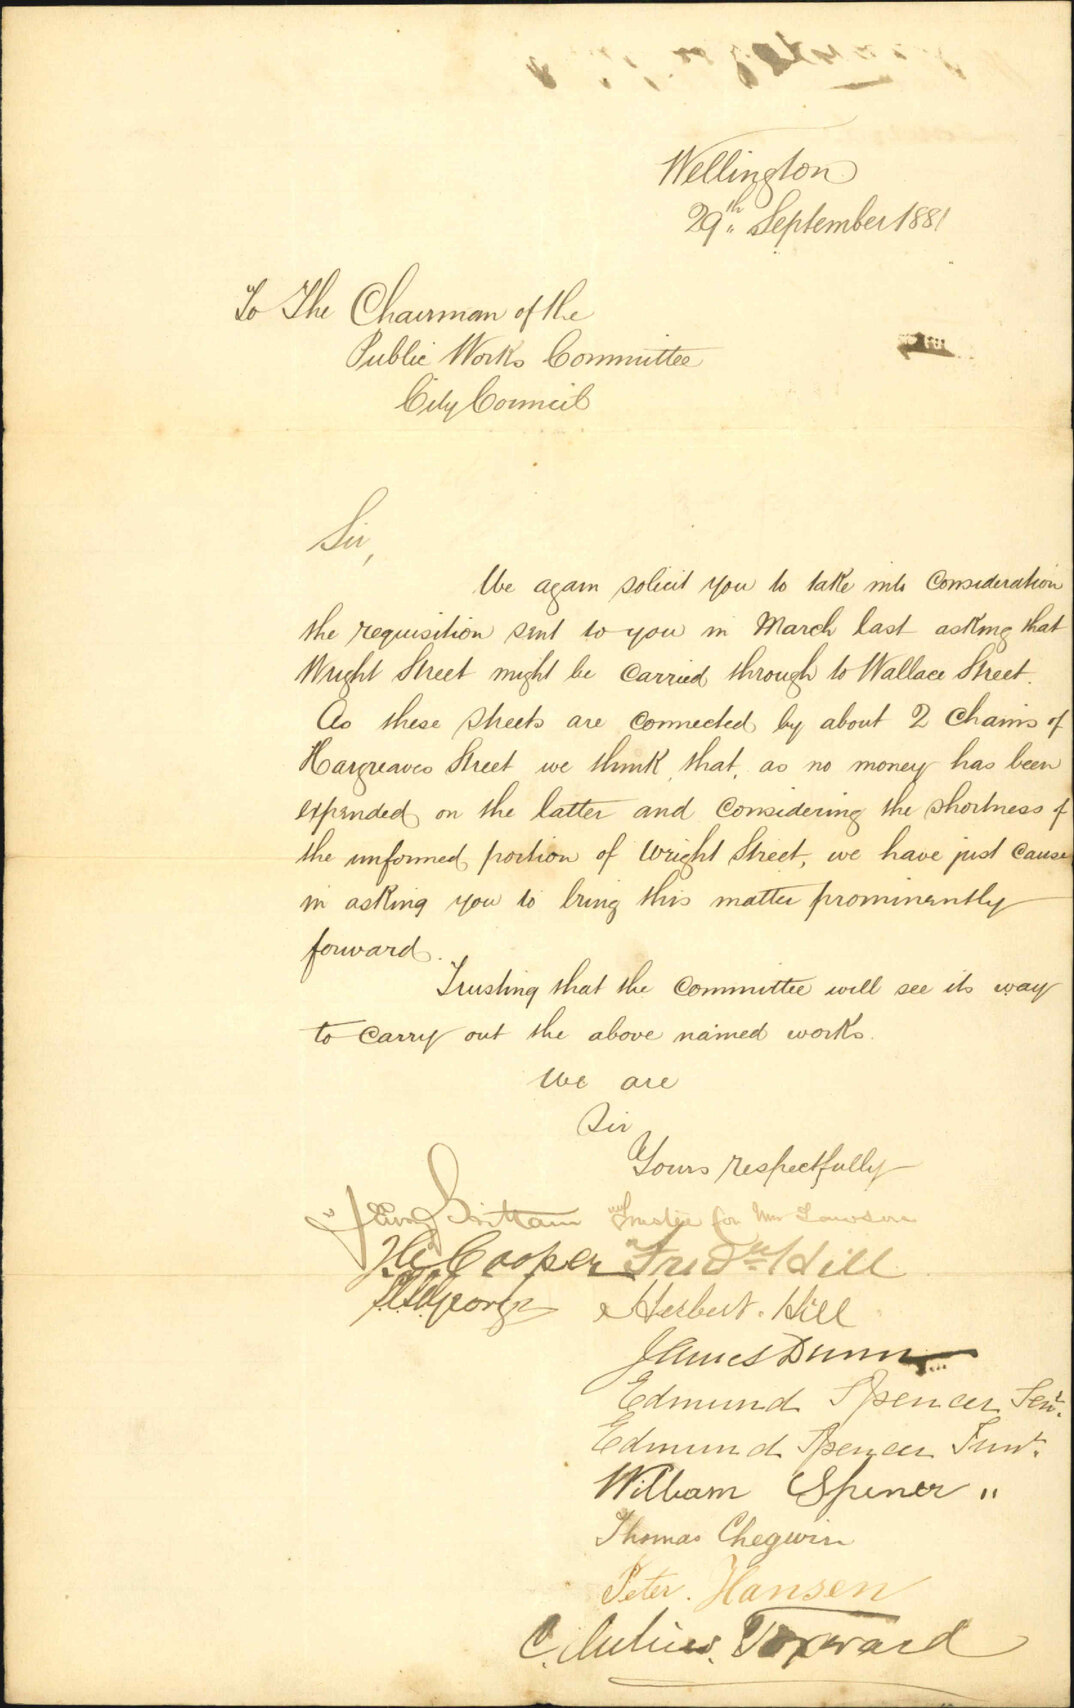 Wellington
29th September 1881
To The Chairman of the
Public Works Committee
City Council
Sir,
We again solicit you to take into Consideration
the requisition sent to you in March last asking that
Wright Street might be Carried through to Wallace Street.
As these streets are Connected by about 2 Chains of
Hargreaves Street we think, that, as no money has been
expended on the latter and Considering the shortness of
the unformed portion of Wright Street, we have just Cause
in asking you to bring this matter prominently
forward.
Trusting that the Committee will see its way
to Carry out the above named works.
We are
Sir
Yours respectfully
Brittain Trustee for Mr Lawson
Cooper Hill
George Herbert. Hill
James Dunn
Edmund Spencer Senr.
Edmund Spencer Junr.
William Spencer "
Thomas Chegwin
Peter. Hansen
C. Julius.